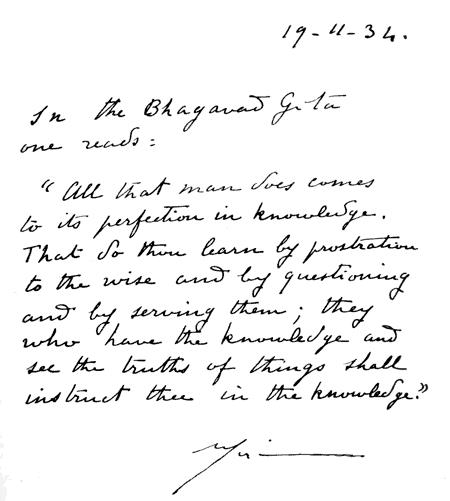 19-11-34.
In the Bhagavad Gita
one reads:
"All that man does comes
to its perfection in knowledge.
That do thou learn by prostration
to the wise and by questioning
and by serving them; they
who have the knowledge and
see the truths of things shall
instruct thee in the knowledge."